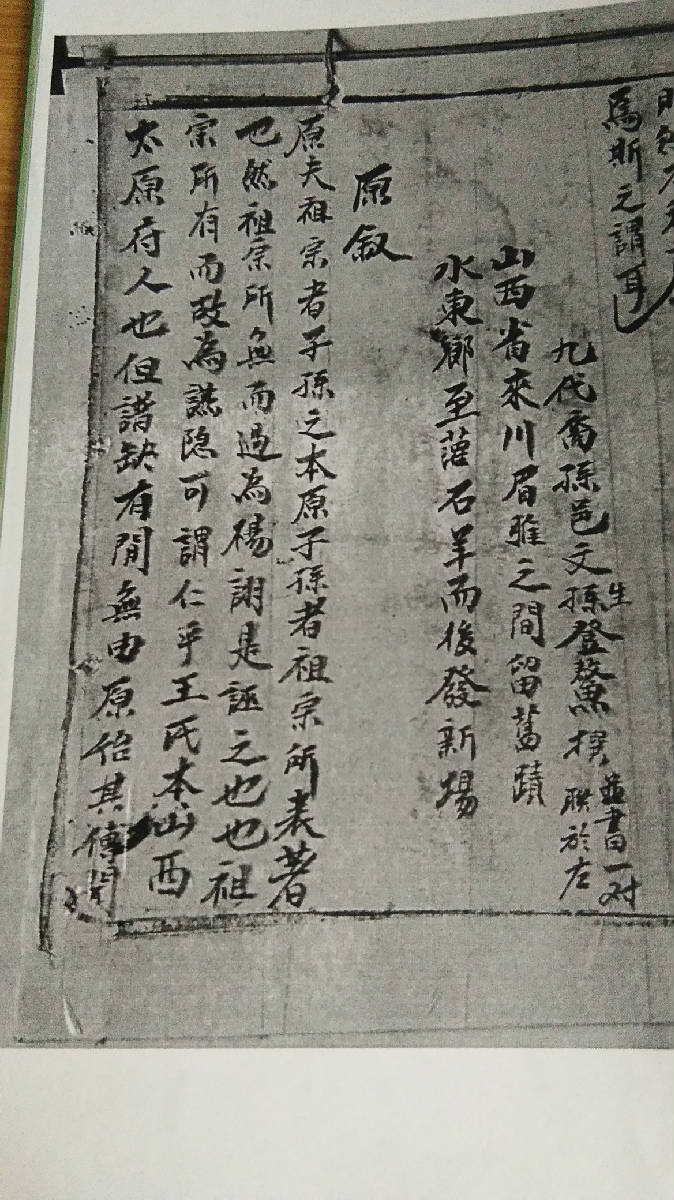 爲斯之謂耳
九代裔孫邑文生孫登鰲撰並書一对联於左
山西省來川眉雅之間留舊蹟
水東鄉至蓿石羊而後發新場
原叙
原夫祖宗者子孫之本原子孫者祖宗所表著
也然祖宗所無而過為揚詡是誣之也也祖
宗所有而改為諱隐可謂仁乎王氏本山西
太原府人也但譜缺有閒無由原始其傳聞